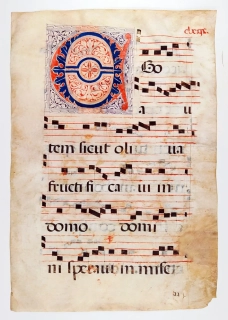 Go
a u
tem sicut oli ua
fructi fi ca ui in
domo do domi
ni speraui in miseri